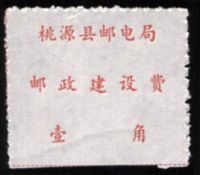 桃源县邮电局
邮政建设费
壹 角